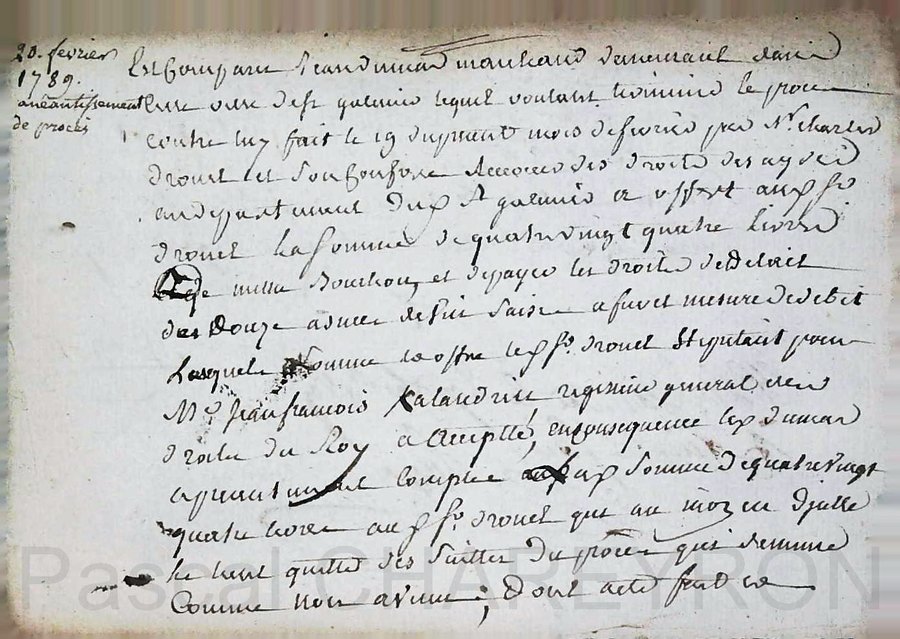 20. fevrier
1789.
anéantissement
de procés
Est Comparu Jean dumas marchand
lieu de st galmier lequel voulant terminer le proces
contre luy fait le 19 du present mois de fevrier par Sr. Charles
drouet et Son Confrere des droits des aydes
au departement du d. St galmier a offert aud. Sr.
drouet la Somme de quatre vingt quatre livres
et de payer les droits de detail
des Douze asnées de vin Saisie a fur et mesure de debit
Laquelle Somme et offre led. Sr. drouet Stipulant pour
Me. Jean francois Kalandrin regisseur general des
droits du Roy a accepté, en consequence led. dumas
a presentement comptée lad. Somme de quatre vingt
quatre livres aud. Sr. drouet qui au moyen d'jcelle
le tient quitte des Suittes du procés qui demeure
Comme non avenu; Dont acte fait et
Pascal CHAREYRON